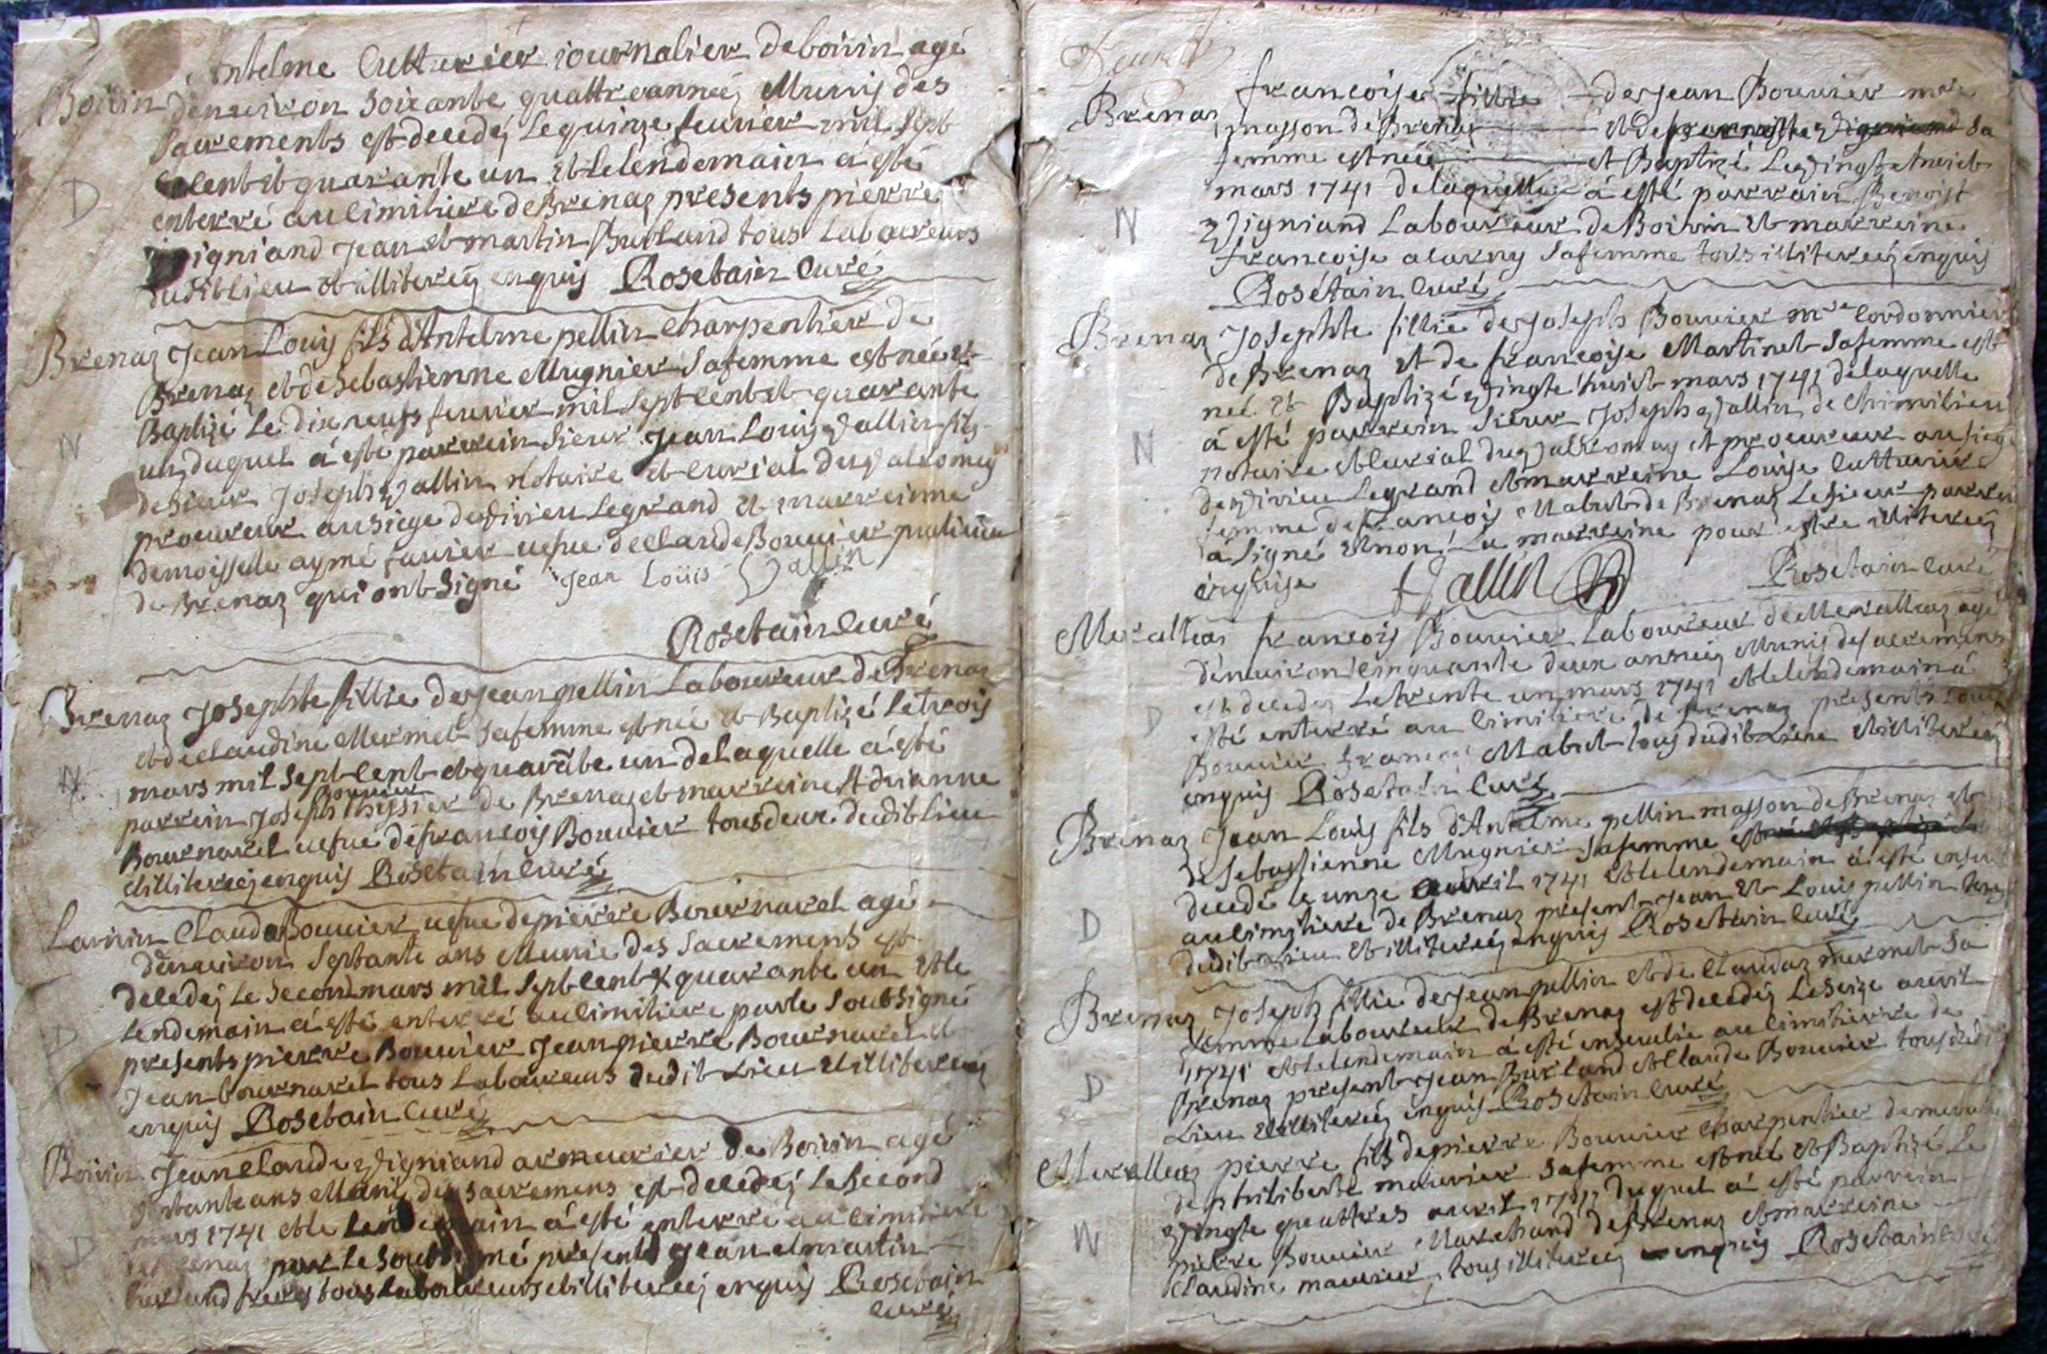 Antelme Cutturier journalier de boirin agé
Boirin denuiron soixante quattre années Munis des
sacrements est decedé le quinze feurier mil sept
cent et quarante un et le lendemain a esté
D
enterré au cimitiere de Brenaz presents pierre
vigniand jean et martin Burland tous laboureurs
dudit lieu et illiterés enquis Rosetain curé
Brenaz Jean Louis fils d'Antelme pellin charpentier de
Brenaz et de sebastienne Mugnier sa femme est né et
Baptizé le dix neufs feurier mil sept cent et quarante
N
un duquel a esté parrein sieur Jean Louis vallin fils
de sieur Joseph vallin notaire et curial du valromey
procureur au siege de virieu le grand et marreinne
demoisselle aymé fauier uefue de Claude Bouuier praticien
de Brenaz qui ont signé Jean Loüis Vallin
Rosetain curé
Brenaz Josephte fillie de jean pellin Laboureur de Brenaz
et de claudine Mermet sa femme est née et Baptizé le trois
mars mil sept cent et quarante un de laquelle a esté
N
Bouuier
parrein Joseph de Brenaz et marreine Adrianne
Bournarel uefue de francois Bouuier tous deux dudit lieu
et illiterés enquis Rosetain curé
Larirn Clauda Bouuier uefue de pierre Bournarel agé
denuiron septante ans Munie des sacrements est
decedé le second mars mil sept cent & quarante un et le
lendemain a esté enterré au cimitiere par le soubsigné
D
presents pierre Bouuier Jean pierre Bournarel et
Jean bournarel tous Laboureurs dudit lieu et illiterés
enquis Rosetain curé
Boirin Jean claude vigniand armeurier de Boirin agé
septante ans Muni des sacremens est decedé le second
mars 1741 et le lendemain a esté enterré au cimitiere
D
de Brenaz par le soubsigné presents Jean et martin
burland freres tous laboureurs et illiterés enquis Rosetain
curé
francoise fillie de jean Bouuier mre
Brenaz masson de Brenaz et de sa
femme est née et Baptizé le vingt et huict
mars 1741 de laquelle a esté parrain Benoist
N
vigniand Laboureur de Boirin et marreine
francoise alarny sa femme tous illiterés enquis
Rosetain curé
Brenaz Josephte fillie de joseph Bouuier mre cordonnier
de Brenaz et de francoise Martinet sa femme est
neé et Baptizé vingte huict mars 1741 de laquelle
a esté parrein sieur Joseph vallin de chimilieu
N
notaire et curial du valromay et procureur au siege
de virieu le grand et marreine Louise Cutturier
femme de francois Mabut de Brenaz le sieur parrein
a signé et non la marreine pour estre illiterés
enquise Vallin Rosetain curé
Meralliaz francois Bouuier Laboureur de Meralliaz agé
denuiron cinquante deux années Munis des sacremens
est decedez le trente un mars 1741 et le lendemain a
D
esté enterré au cimitiere de Brenaz presents
Bouuier francois Mabut tous dudit lieu et illiterés
enquis Rosetain curé
Brenaz Jean Louis fils d'Antelme pellin masson de Brenaz et
de sebastienne Mugnier sa femme est
decedé le unze auril 1741 et le lendemain a esté
D
au cimitiere de Brenaz present Jean et Louis pellin
dudit lieu et illiterés enquis Rosetain curé
Brenaz Joseph fillie de jean pellin et de claudaz mermet sa
femme Laboureur de Brenaz est decedez le seize auril
1741 et le lendemain a esté enseuelie au cimitierre de
D
Brenaz present jean Burland et Claude Bouuier tous
Lieu et illiterés enquis Rosetain curé
Meralliaz pierre fils de pierre Bouuier charpentier de
de philiberte meurier sa femme est né et Baptizé le
vingte quattres auril 1741 duquel a esté parrein
N
pierre Bouuier Marchand de Brenaz et marreine
Claudine maurier tous illiterés enquis Rosetain curé